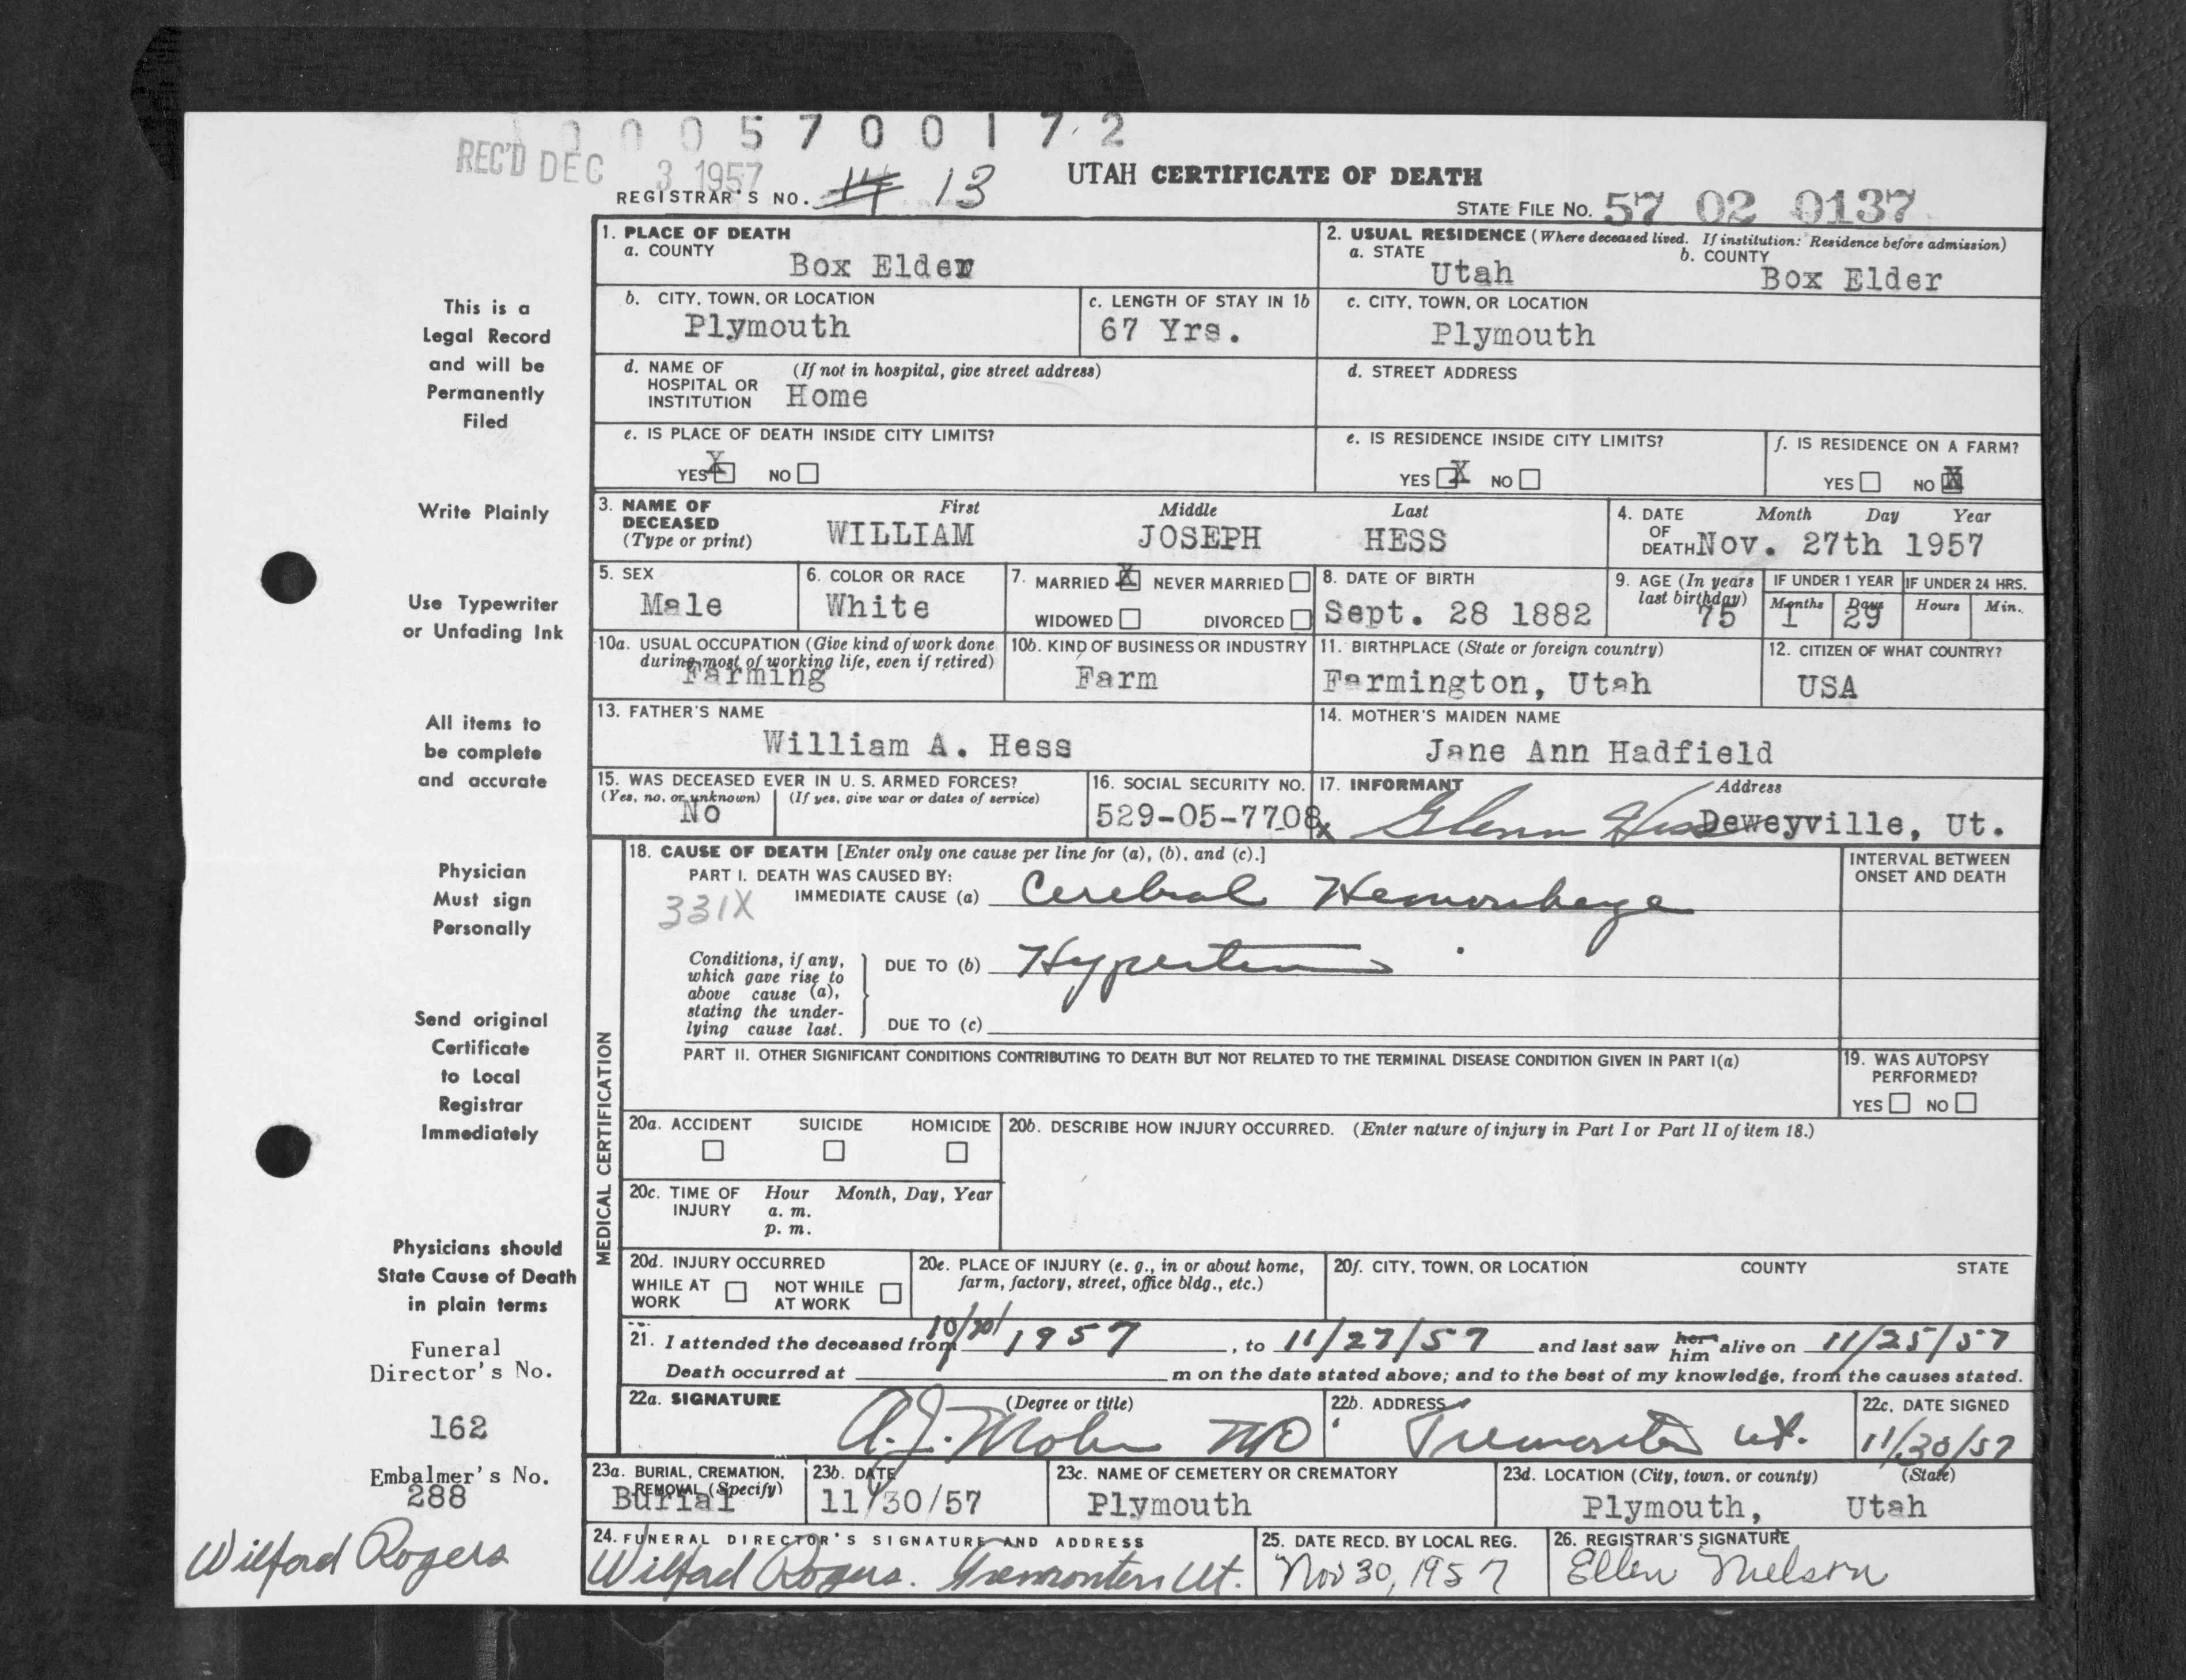 0005700172
REC'D DEC 3 1957
REGISTRAR'S NO. 14 13
UTAH CERTIFICATE OF DEATH
STATE FILE NO. 57 02 0137
1. PLACE OF DEATH
a. COUNTY
Box Elder
2. USUAL RESIDENCE (Where deceased lived. If institution: Residence before admission)
a. STATE
Utah
b. COUNTY
Box Elder
b. CITY, TOWN, OR LOCATION
Plymouth
c. LENGTH OF STAY IN 1b
67 Yrs.
c. CITY, TOWN, OR LOCATION
Plymouth
d. NAME OF HOSPITAL OR INSTITUTION
(If not in hospital, give street address)
Home
d. STREET ADDRESS
e. IS PLACE OF DEATH INSIDE CITY LIMITS?
YES X NO
e. IS RESIDENCE INSIDE CITY LIMITS?
YES X NO
f. IS RESIDENCE ON A FARM?
YES NO X
3. NAME OF DECEASED
(Type or print)
First Middle Last
WILLIAM JOSEPH HESS
4. DATE OF DEATH
Month Day Year
Nov. 27th 1957
5. SEX
Male
6. COLOR OR RACE
White
7. MARRIED X NEVER MARRIED
WIDOWED DIVORCED
8. DATE OF BIRTH
Sept. 28 1882
9. AGE (In years last birthday)
75
IF UNDER 1 YEAR
Months Days
1 29
IF UNDER 24 HRS.
Hours Min.
10a. USUAL OCCUPATION (Give kind of work done during most of working life, even if retired)
Farming
10b. KIND OF BUSINESS OR INDUSTRY
Farm
11. BIRTHPLACE (State or foreign country)
Farmington, Utah
12. CITIZEN OF WHAT COUNTRY?
USA
13. FATHER'S NAME
William A. Hess
14. MOTHER'S MAIDEN NAME
Jane Ann Hadfield
15. WAS DECEASED EVER IN U. S. ARMED FORCES?
(Yes, no, or unknown) (If yes, give war or dates of service)
No
16. SOCIAL SECURITY NO.
529-05-7708
17. INFORMANT Address
x Glenn Hess Deweyville, Ut.
MEDICAL CERTIFICATION
18. CAUSE OF DEATH [Enter only one cause per line for (a), (b), and (c).]
PART I. DEATH WAS CAUSED BY:
IMMEDIATE CAUSE (a) Cerebral Hemorrhage
331X
INTERVAL BETWEEN ONSET AND DEATH
Conditions, if any, which gave rise to above cause (a), stating the underlying cause last.
DUE TO (b) Hypertension
DUE TO (c)
PART II. OTHER SIGNIFICANT CONDITIONS CONTRIBUTING TO DEATH BUT NOT RELATED TO THE TERMINAL DISEASE CONDITION GIVEN IN PART I(a)
19. WAS AUTOPSY PERFORMED?
YES NO
20a. ACCIDENT SUICIDE HOMICIDE
20b. DESCRIBE HOW INJURY OCCURRED. (Enter nature of injury in Part I or Part II of item 18.)
20c. TIME OF INJURY
Hour Month, Day, Year
a. m.
p. m.
20d. INJURY OCCURRED
WHILE AT WORK NOT WHILE AT WORK
20e. PLACE OF INJURY (e. g., in or about home, farm, factory, street, office bldg., etc.)
20f. CITY, TOWN, OR LOCATION COUNTY STATE
21. I attended the deceased from 1957, to 11/27/57 and last saw her him alive on 11/25/57
Death occurred at m on the date stated above; and to the best of my knowledge, from the causes stated.
22a. SIGNATURE (Degree or title)
MD
22b. ADDRESS
Tremonton Ut.
22c. DATE SIGNED
11/30/57
23a. BURIAL, CREMATION, REMOVAL (Specify)
Burial
23b. DATE
11/30/57
23c. NAME OF CEMETERY OR CREMATORY
Plymouth
23d. LOCATION (City, town, or county) (State)
Plymouth, Utah
24. FUNERAL DIRECTOR'S SIGNATURE AND ADDRESS
Wilford Rogers. Tremonton Ut.
25. DATE RECD. BY LOCAL REG.
Nov 30, 1957
26. REGISTRAR'S SIGNATURE
Ellen Nielson
This is a
Legal Record
and will be
Permanently
Filed
Write Plainly
Use Typewriter
or Unfading Ink
All items to
be complete
and accurate
Physician
Must sign
Personally
Send original
Certificate
to Local
Registrar
Immediately
Physicians should
State Cause of Death
in plain terms
Funeral
Director's No.
162
Embalmer's No.
288
Wilford Rogers